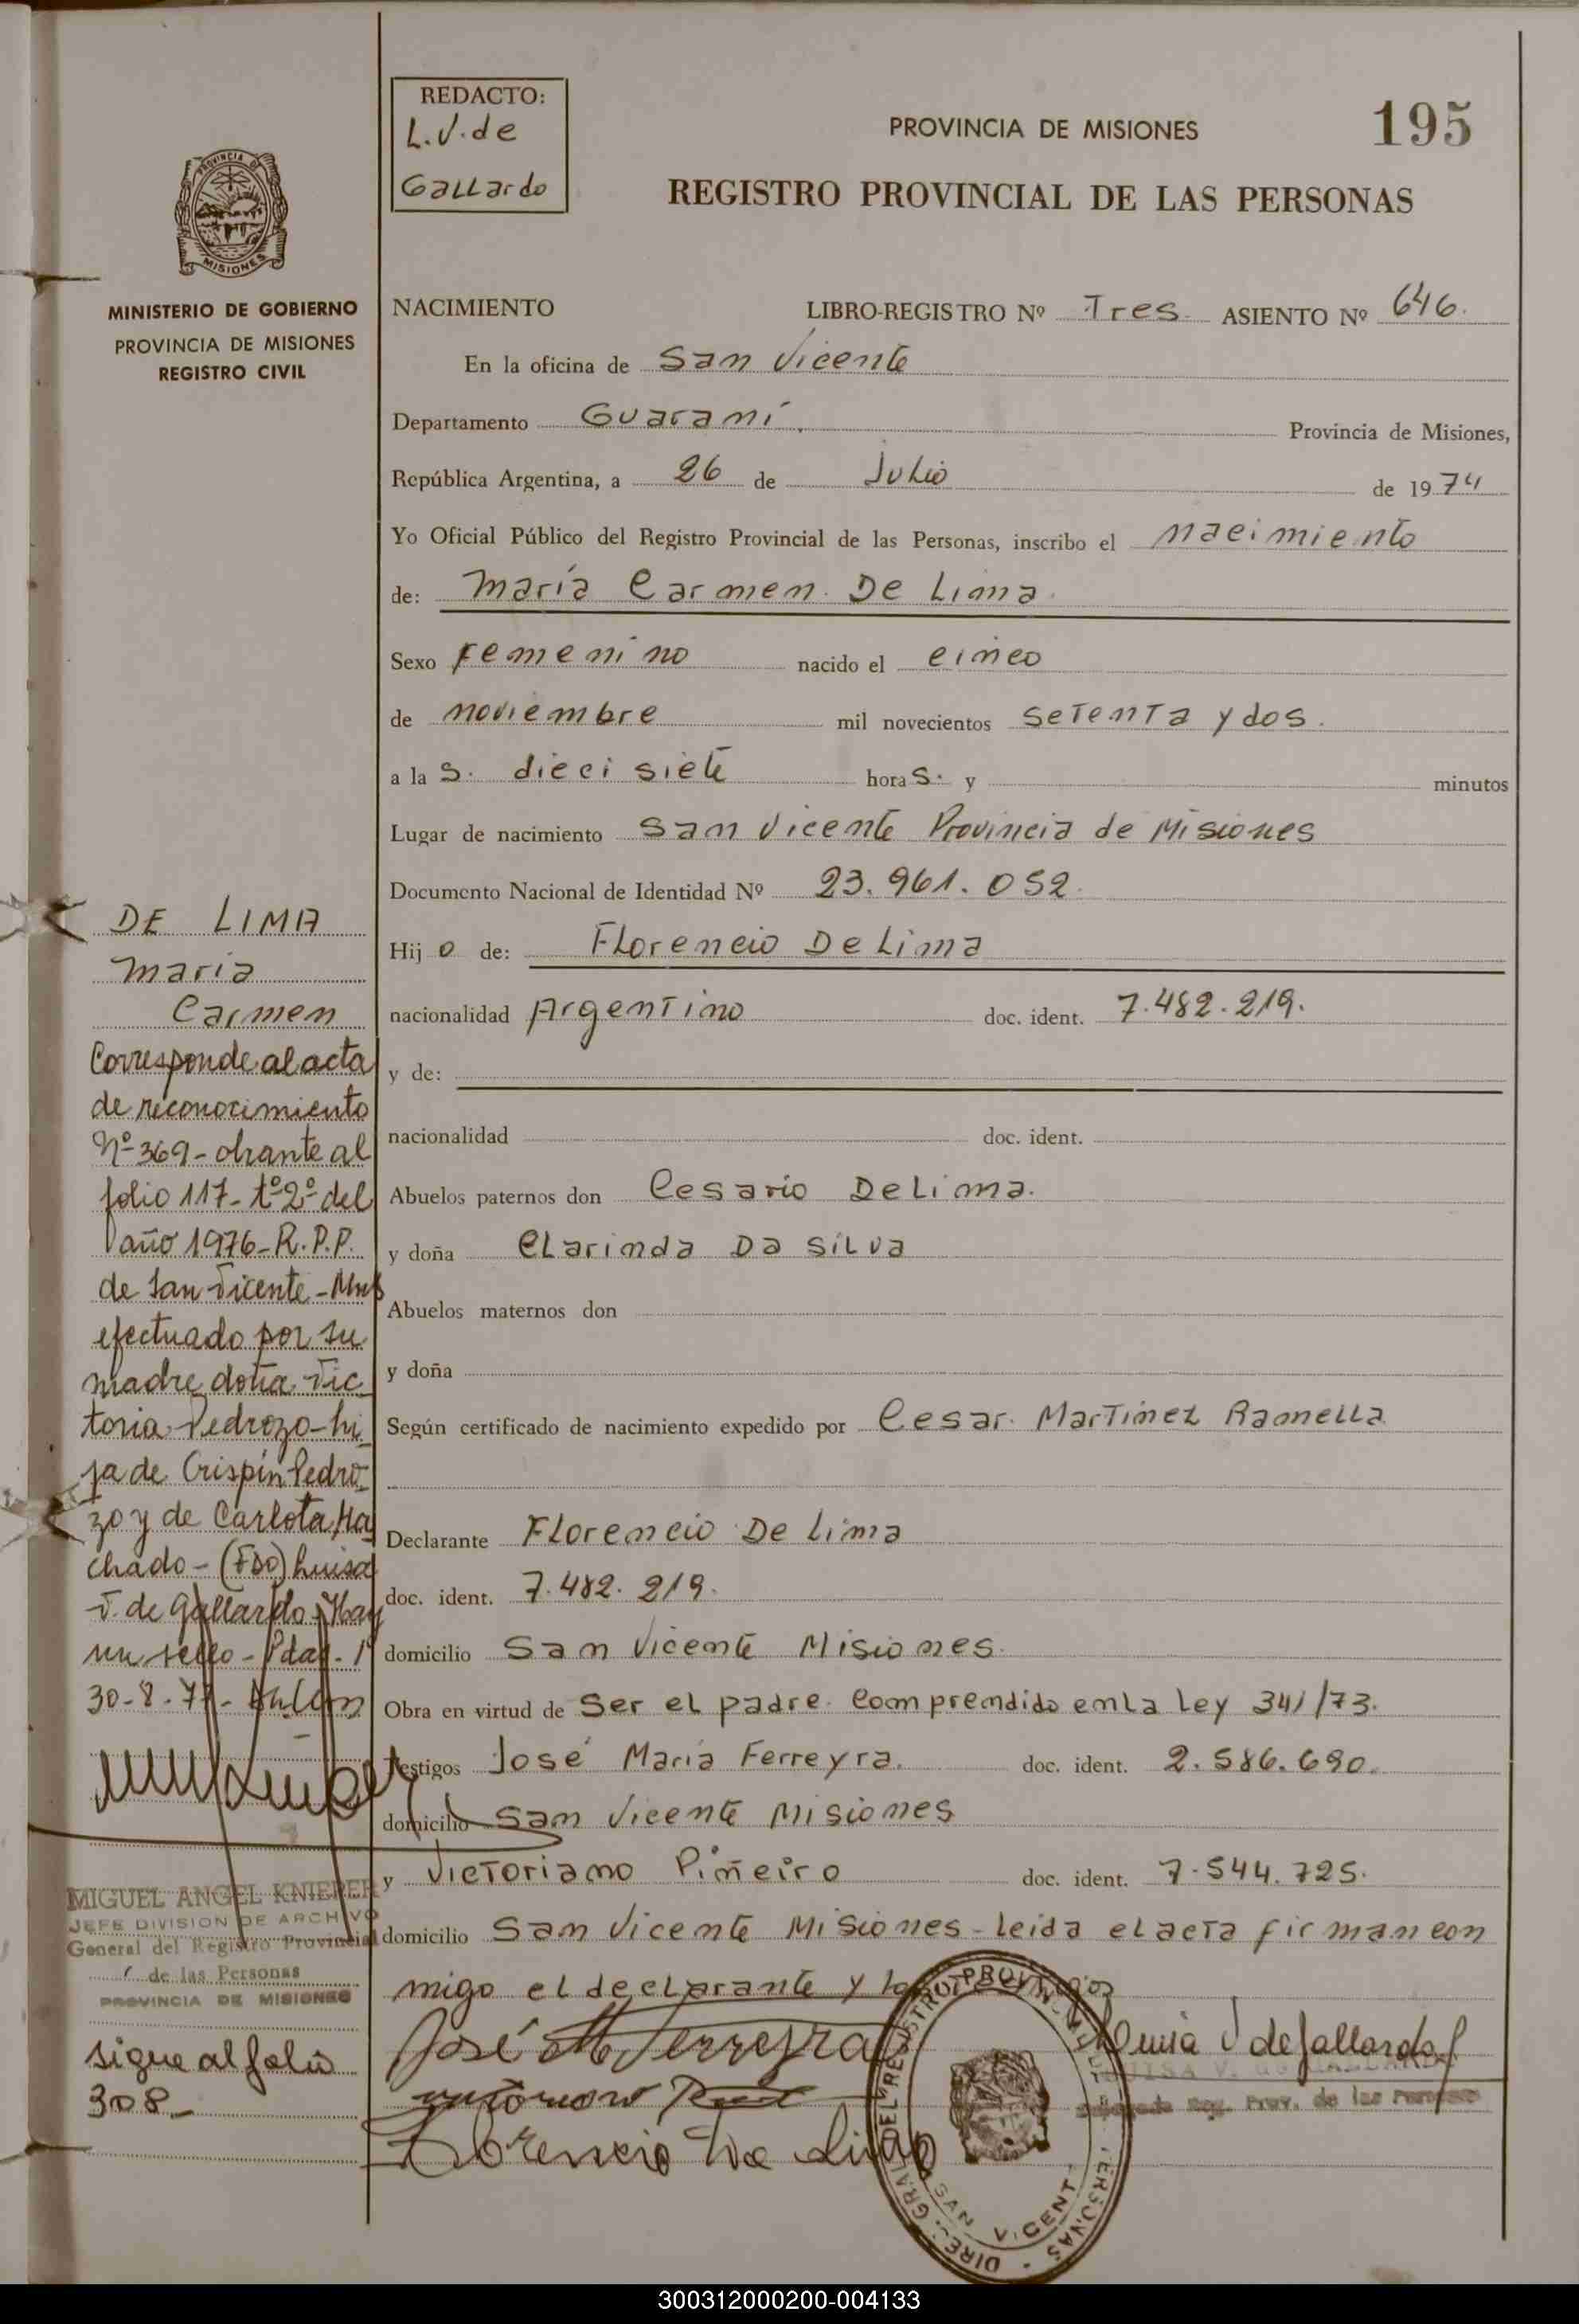 REDACTO:
L.V. de
Gallardo
PROVINCIA DE MISIONES
195
REGISTRO PROVINCIAL DE LAS PERSONAS
PROVINCIA DE
MISIONES
MINISTERIO DE GOBIERNO
PROVINCIA DE MISIONES
REGISTRO CIVIL
NACIMIENTO LIBRO-REGISTRO Nº Tres. ASIENTO Nº 646.
En la oficina de San Vicente
Departamento Guaraní. Provincia de Misiones,
República Argentina, a 26 de Julio de 1974
Yo Oficial Público del Registro Provincial de las Personas, inscribo el nacimiento
de: María Carmen De Lima.
Sexo femenino nacido el cinco
de noviembre mil novecientos setenta y dos.
a la s. dieci siete hora s. y minutos
Lugar de nacimiento San Vicente Provincia de Misiones
Documento Nacional de Identidad Nº 23.961.052.
Hij o de: Florencio De Lima
nacionalidad Argentino doc. ident. 7.482.219.
y de:
nacionalidad doc. ident.
Abuelos paternos don Cesario De Lima.
y doña Clarinda Da Silva
Abuelos maternos don
y doña
Según certificado de nacimiento expedido por Cesar Martinez Ramella
Declarante Florencio De Lima
doc. ident. 7.482.219.
domicilio San Vicente Misiones.
Obra en virtud de ser el padre. Comprendido en la Ley 341/73.
Testigos José María Ferreyra. doc. ident. 2.586.690.
domicilio San Vicente Misiones
y Victoriano Piñeiro doc. ident. 7.544.725.
domicilio San Vicente Misiones - leida el acta firman con
migo el declarante y los testigos
José M Ferreyra
Florencio De Lima
Luisa V de Gallardo
LUISA V. DE GALLARDO
Reg. Prov. de las Personas
DIREC. GRAL. DEL REGISTRO PROVINCIAL DE LAS PERSONAS
SAN VICENTE
DE LIMA
Maria
Carmen
Corresponde al acta
de reconocimiento
Nº 369 - obrante al
folio 117 - tº 2º del
año 1976 - R.P.P.
de San Vicente - Mnes
efectuado por su
madre doña Vic
toria Pedrozo - hi
ja de Crispín Pedro-
zo y de Carlota Ma
chado - (FDO) Luisa
V. de Gallardo - Hay
un sello - Pdas.
MIGUEL ANGEL KNIEPER
JEFE DIVISION DE ARCHIVO
General del Registro Provincial
de las Personas
PROVINCIA DE MISIONES
sigue al folio
308-
300312000200-004133